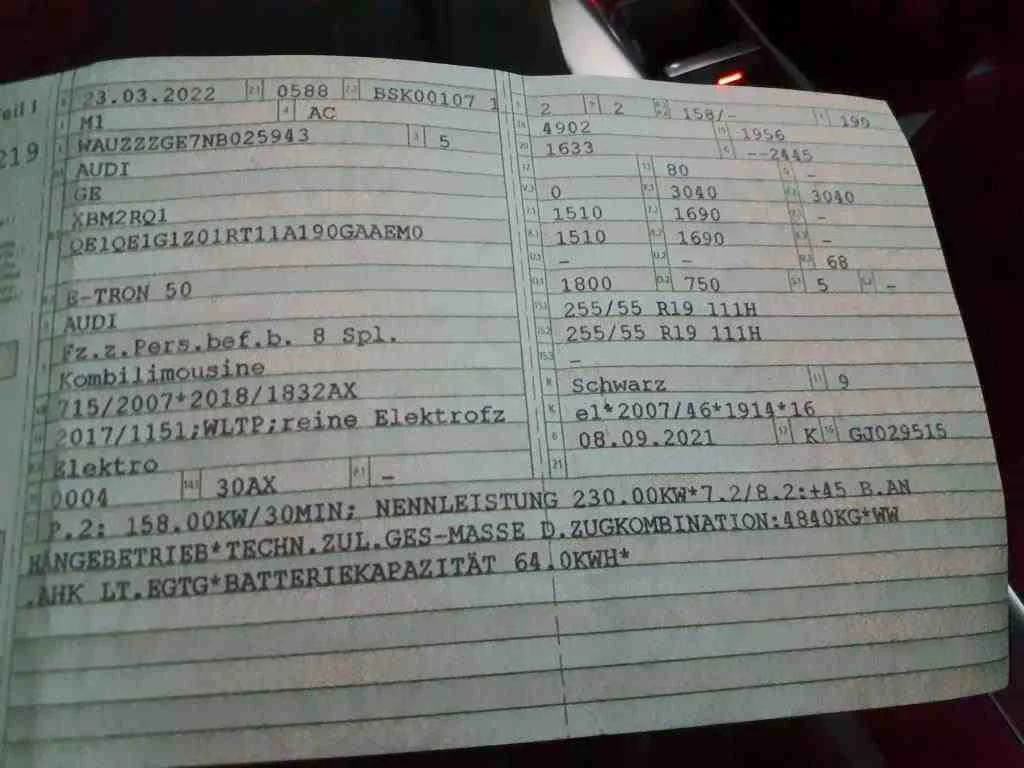 Teil I
219
23.03.2022 2.1 0588 2.2 BSK00107 1
M1 4 AC
WAUZZZGE7NB025943 3 5
AUDI
GE
XBM2RQ1
QE1QE1G1Z01RT11A190GAAEM0
E-TRON 50
AUDI
Fz.z.Pers.bef.b. 8 Spl.
Kombilimousine
715/2007*2018/1832AX
2017/1151;WLTP;reine Elektrofz
Elektro
0004 14.1 30AX P.1 –
2 2 158/- 190
4902 1956
1633 --2445
80 –
0 3040 3040
1510 1690 –
1510 1690 –
– – 68
1800 750 5 –
15.1 255/55 R19 111H
15.2 255/55 R19 111H
15.3 –
R Schwarz 11 9
K e1*2007/46*1914*16
6 08.09.2021 17 K 16 GJ029515
21
P.2: 158.00KW/30MIN; NENNLEISTUNG 230.00KW*7.2/8.2:+45 B.AN
HÄNGEBETRIEB*TECHN.ZUL.GES-MASSE D.ZUGKOMBINATION:4840KG*WW
.AHK LT.EGTG*BATTERIEKAPAZITÄT 64.0KWH*